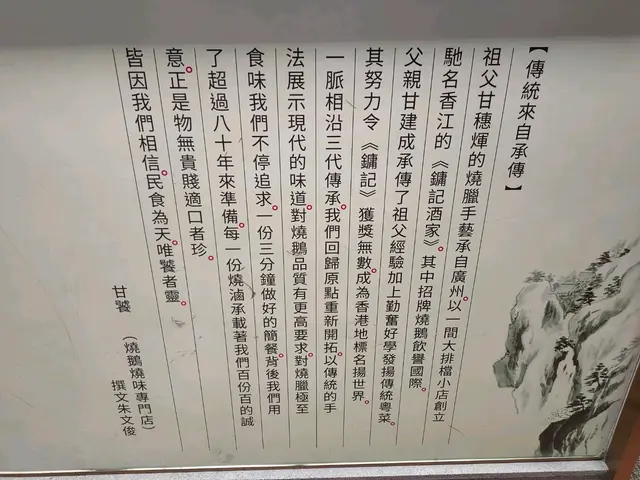 【傳統來自承傳】
祖父甘穗煇的燒臘手藝承自廣州。以一間大排檔小店創立
馳名香江的《鏞記酒家》。其中招牌燒鵝飲譽國際。
父親甘建成承傳了祖父經驗加上勤奮好學發揚傳統粵菜。
其努力令《鏞記》獲獎無數。成為香港地標名揚世界。
一脈相沿三代傳承。我們回歸原點重新開拓。以傳統的手
法展示現代的味道。對燒鵝品質有更高要求。對燒臘極至
食味我們不停追求。一份三分鐘做好的簡餐。背後我們用
了超過八十年來準備。每一份燒滷承載著我們百份百的誠
意。正是物無貴賤適口者珍。
皆因我們相信。民食為天。唯饕者靈。
甘饕
（燒鵝燒味專門店）
撰文朱文俊